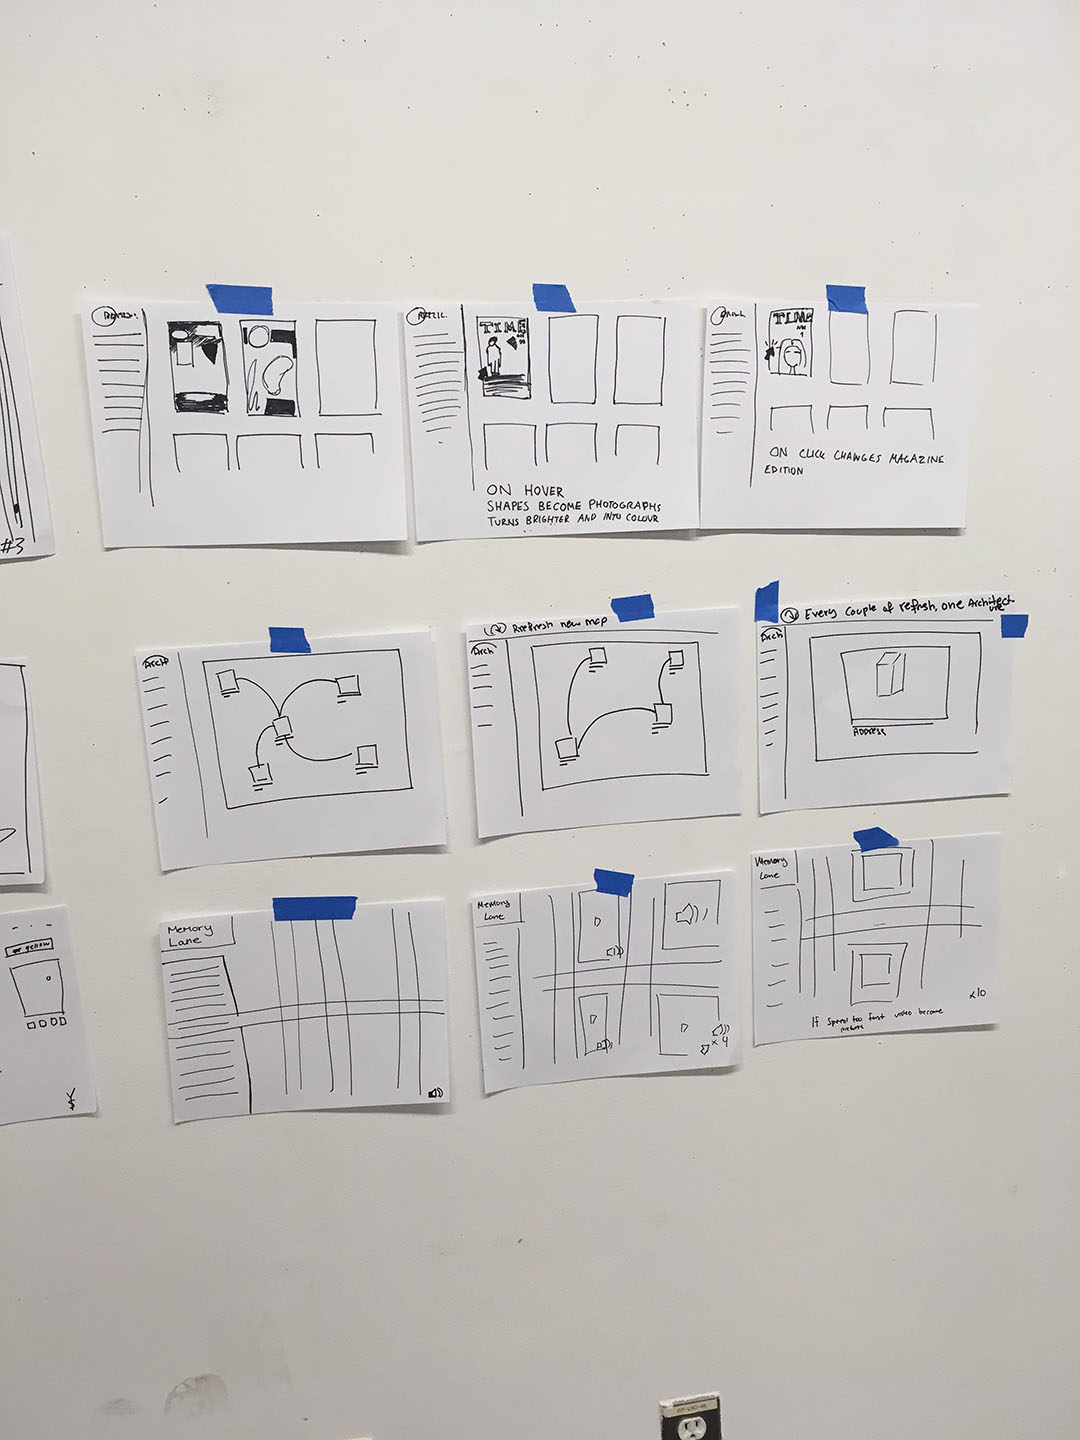 #3
TIME
ON HOVER
SHAPES BECOME PHOTOGRAPHS
TURNS BRIGHTER AND INTO COLOUR
TIME
ON CLICK CHANGES MAGAZINE
EDITION
Arch
Refresh new map
Arch
Every couple of refresh, one Architect
ure
Arch
ADDRESS
yellow
Memory
Lane
Memory
Lane
x 4
Memory
Lane
x10
If Speed too fast video become
picture